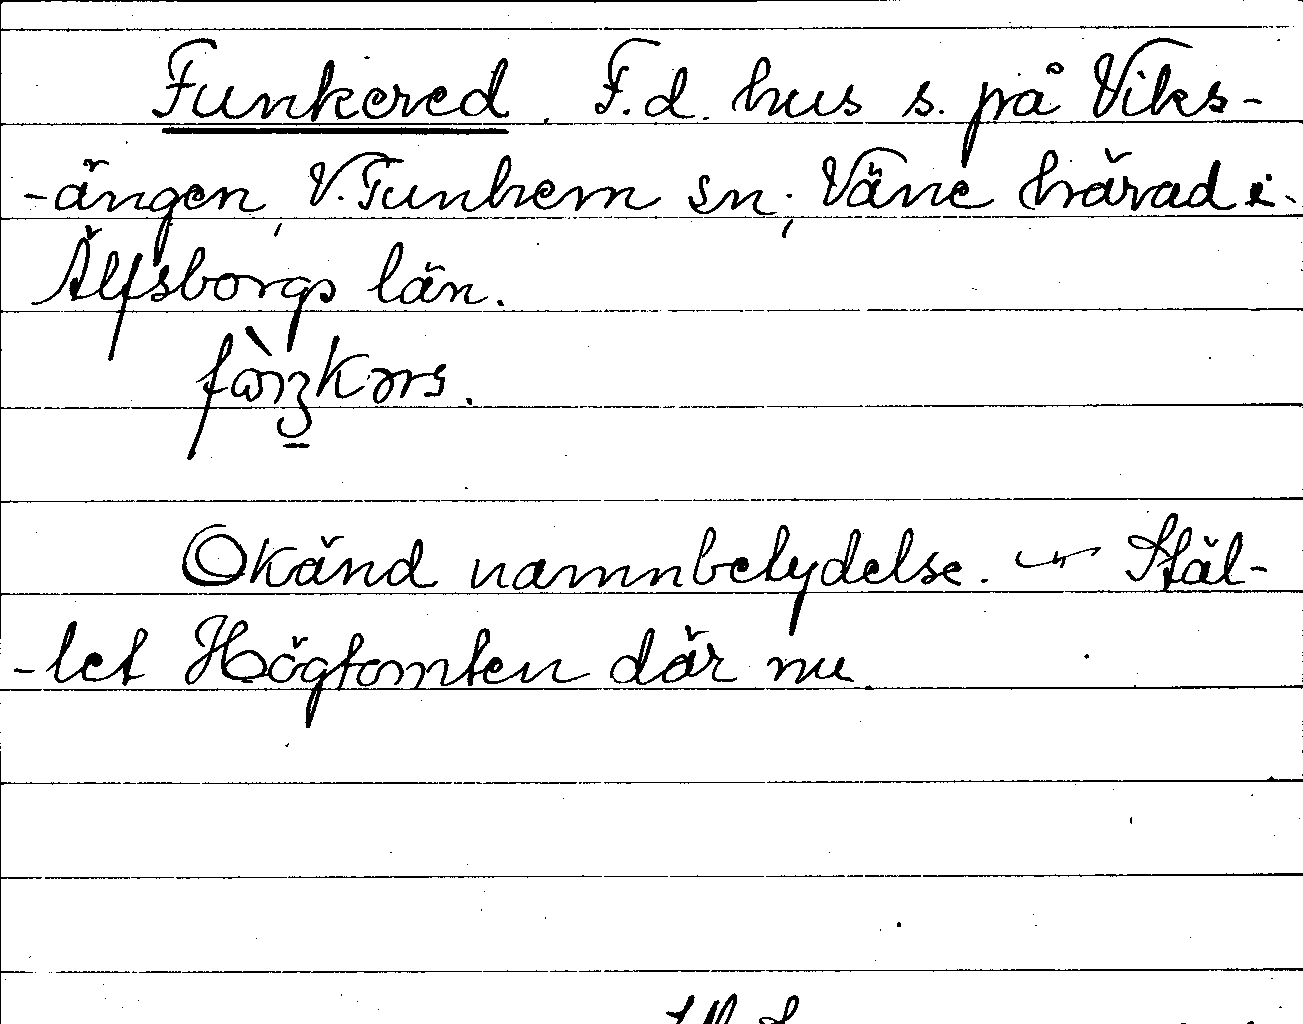 Funkered. F.d. hus s. på Viks-
-ängen, V. Tunhem sn; Väne härad i.
Älfsborgs län.
Okänd namnbetydelse. — Stäl-
-let Högtomten där nu.